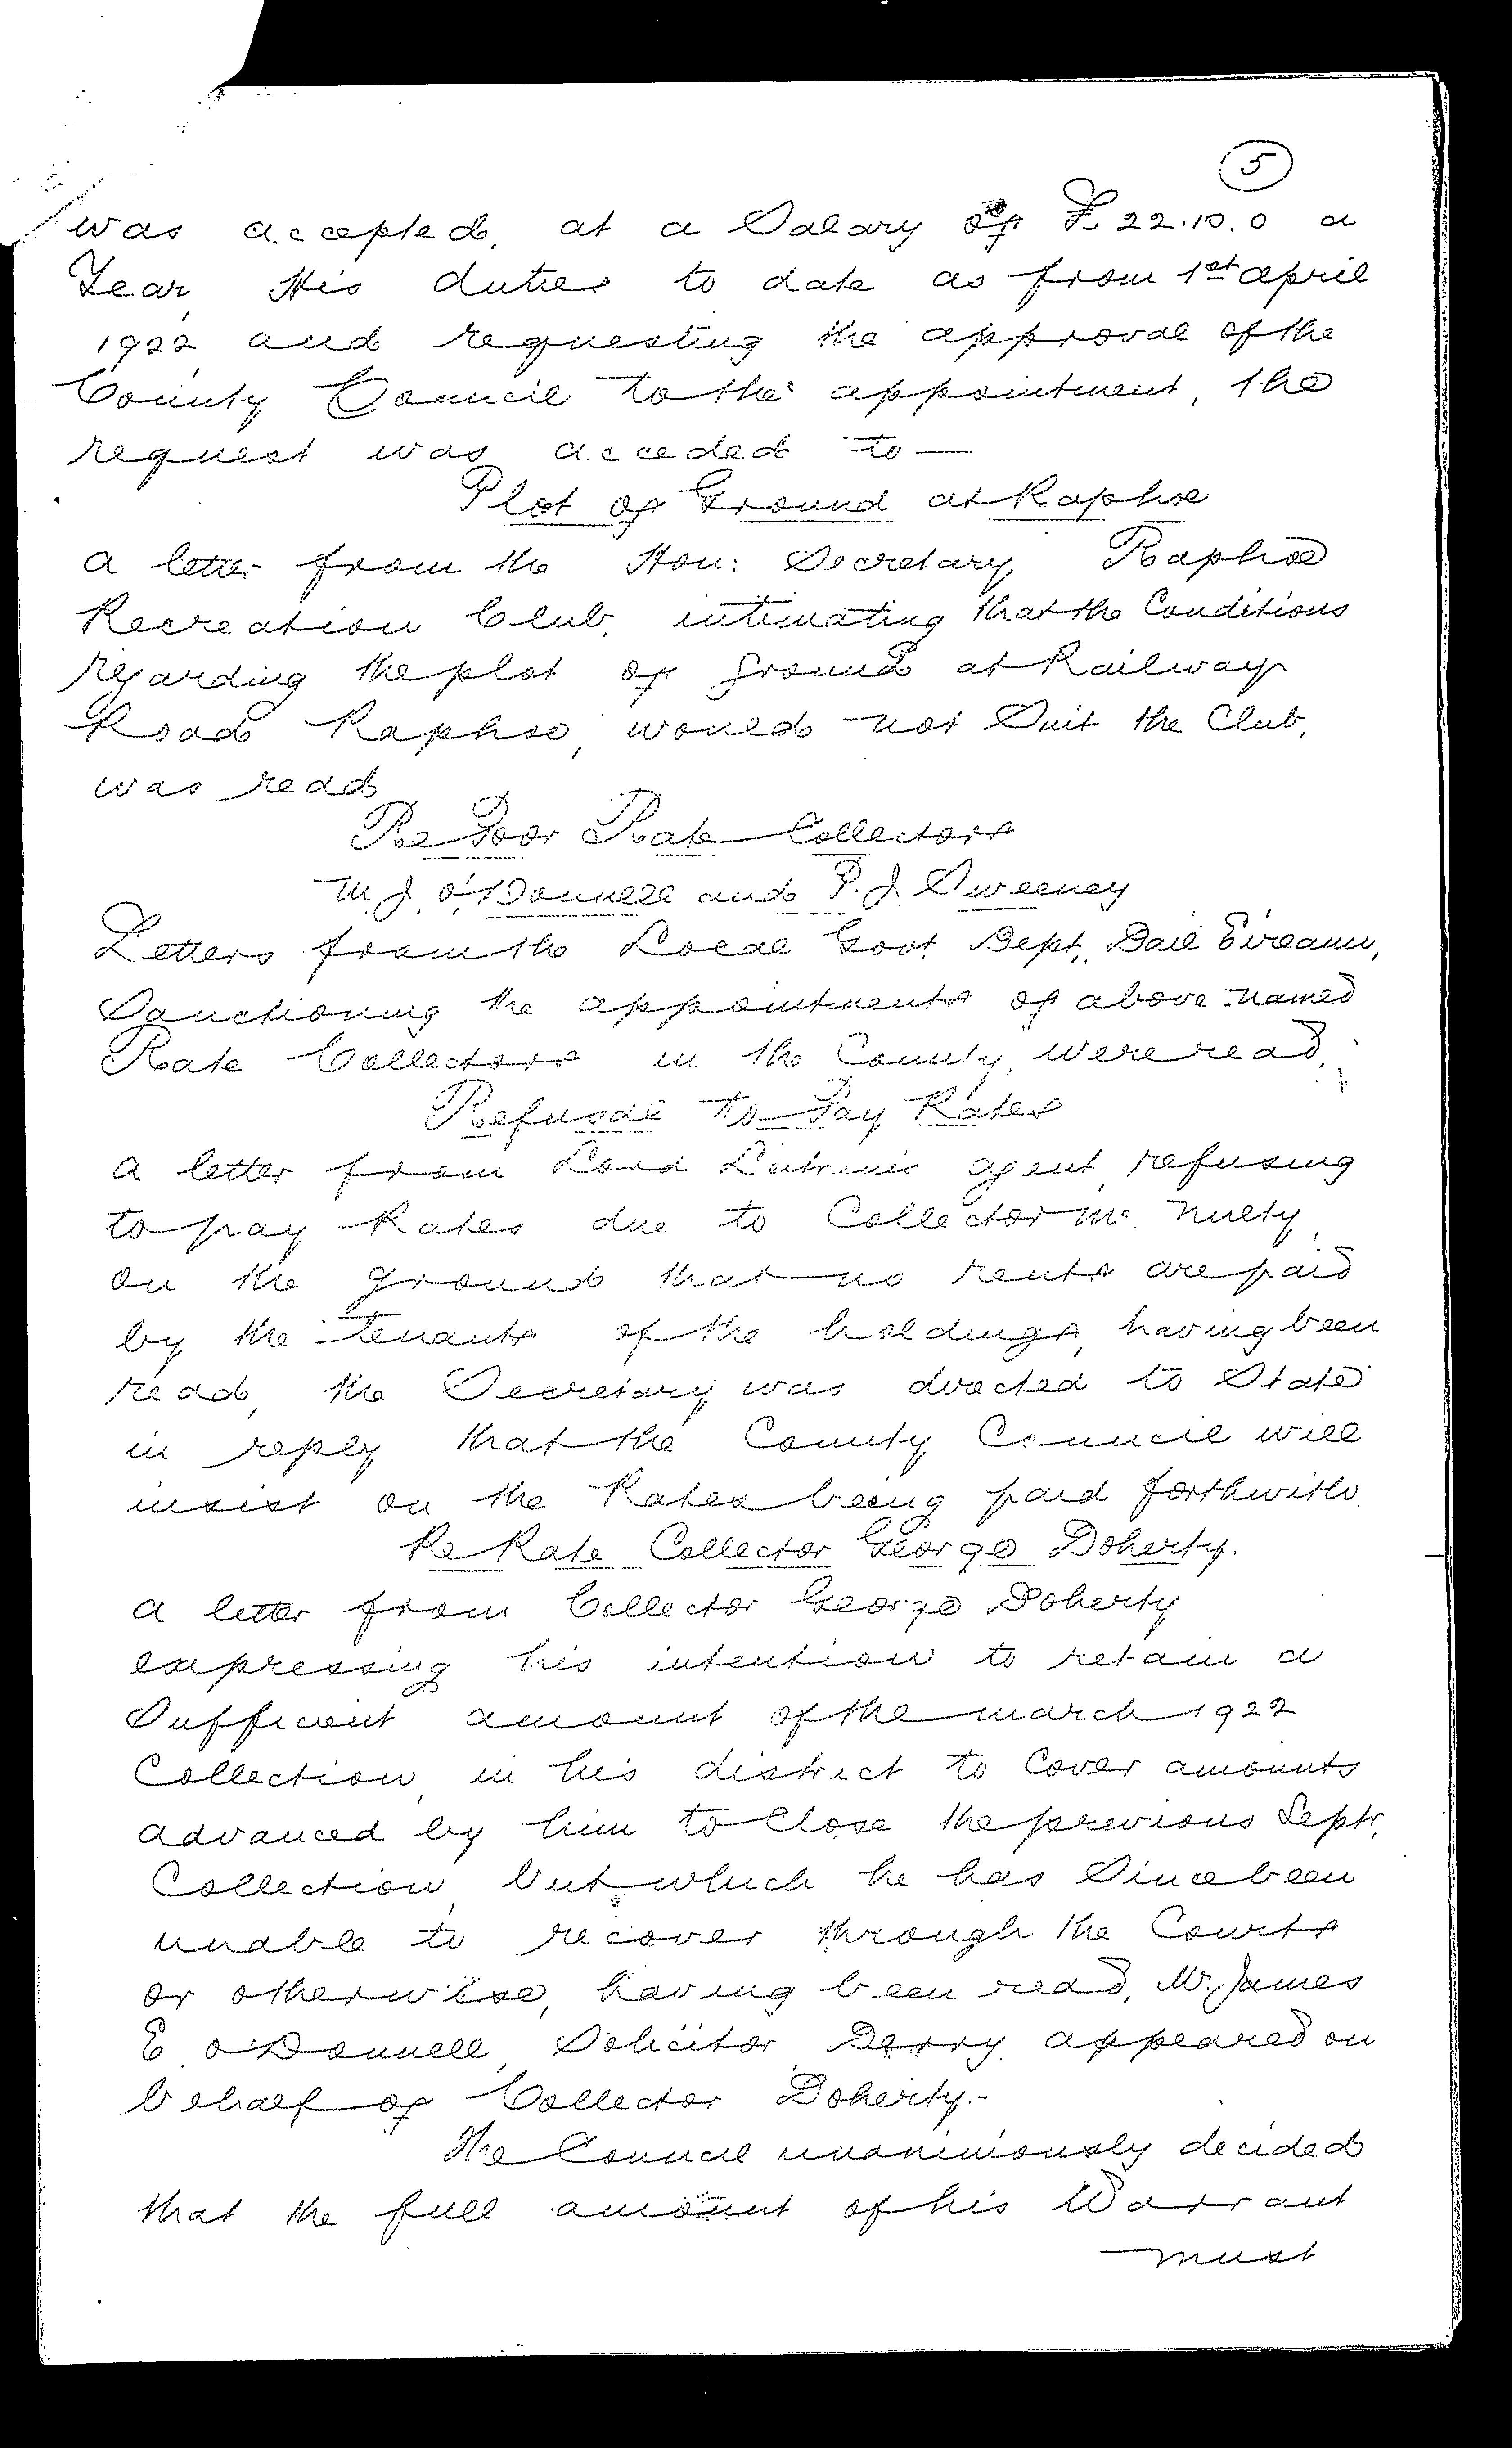 5
was accepted, at a Salary of £22.10.0 a
Year, His duties to date as from 1st april
1922 and requesting the approval of the
County Council to the appointment, the
request was acceded to —
Plot of Ground at Raphoe
a letter from the Hon: Secretary Raphoe
Recreation Club, intimating that the Conditions
regarding the plot of ground at Railway
Road Raphoe, would not Suit the Club,
was read
Re Poor Rate Collectors
M. J. O'Donnell and P. J. Sweeney
Letters from the Local Govt Dept, Dail Eireann,
Sanctioning the appointments of above named
Rate Collectors in the County, were read,
Refusal To Pay Rates
a letter from Lord agent, refusing
to pay Rates due to Collector Mc Nulty,
on the ground that no rents are paid
by the Tenants of the holdings, having been
read, the Secretary was directed to State
in reply that the County Council will
insist on the Rates being paid forthwith.
Re Rate Collector George Doherty.
a letter from Collector George Doherty
expressing his intention to retain a
Sufficient amount of the march 1922
Collection, in his district to Cover amounts
advanced by him to Close the previous Septr.
Collection, but which he has Since been
unable to recover through the Courts
or otherwise, having been read, Mr. James
E. O'Donnell, Solicitor, Derry, appeared on
behalf of Collector Doherty.-
The Council unanimously decided
that the full amount of his Warrant
must